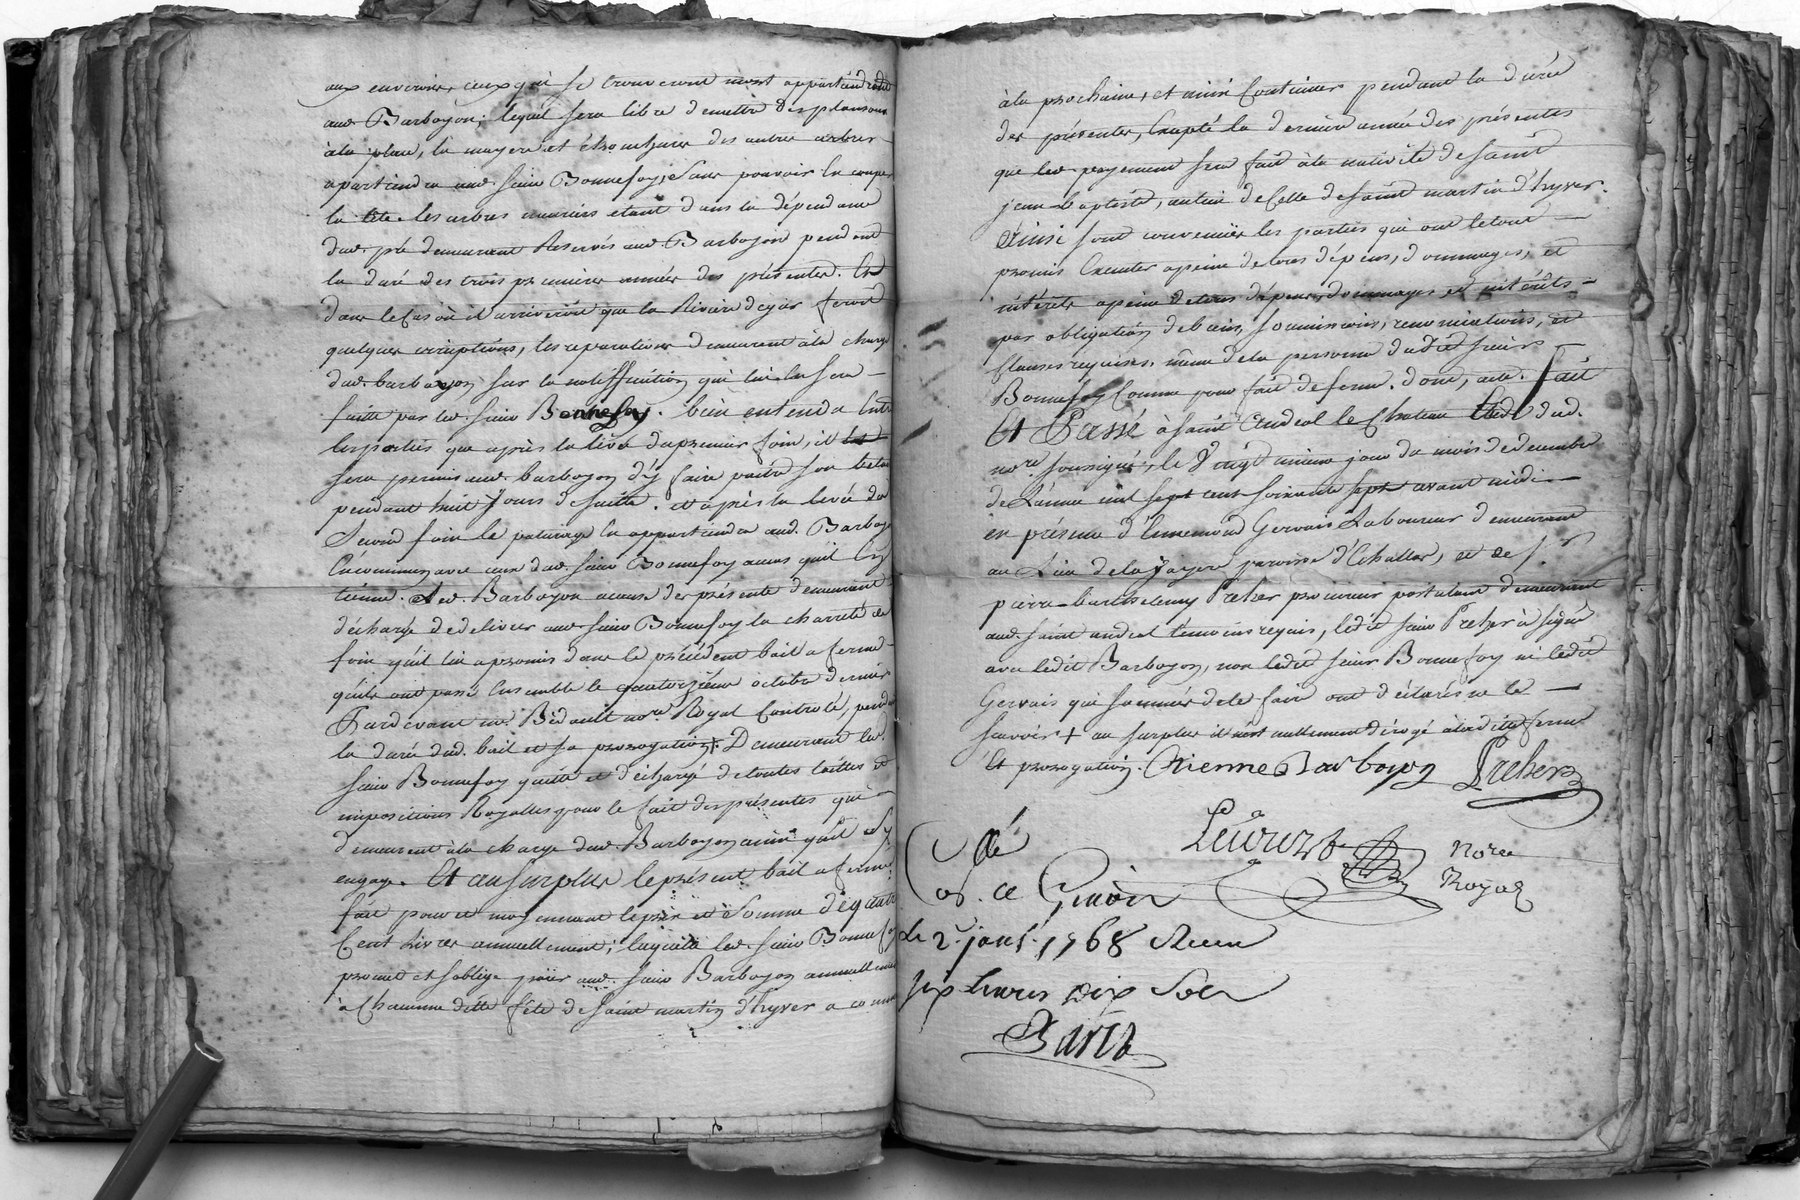 aux environs, ceux qui se trouveront mort appartiendront
aud. Barboyon; lequel sera libre d'emettre des plansons
à la place, la mayere et ébronchures des autres arbres
apartiendra aud. sieur Bonnefoy, sans pouvoir en couper
la tête. les arbres muriers etant dans la dépendance
dud. pré demeurant Reservés aud. Barboyon pendant
la duré des trois premieres années des présentes. Et
dans le cas où il arriveroit que la Riviere de gier feroit
quelques corruptions, les reparations demeurent à la charge
dud. barboyon sur la notiffication qui lui en sera
faitte par led. sieur Bonnefoy. bien entendu entre
les parties que après la levée du premier foin, il
sera permis aud. barboyon d'y faire paitre son betail
pendant huit jours de suitte. et après la levée du
second foin le paturage en appartiendra aud. Barboyon
En commun avec ceux dud. sieur Bonnefoy
Led. Barboyon au moyen des présente demeurant
décharge de delivrer aud. sieur Bonnefoy la charreté de
foin qu'il lui a promis dans le précédent bail a ferme
qu'ils ont passé Ensemble le quatorzième octobre dernier
Pardevant me. Bedault nore. Royal Controlé, pendant
la duré dud. bail et sa prorogation + Demeurant led.
sieur Bonnefoy quitte et déchargé de toutes tailles et
impositions Royalles pour le fait des présentes qui
demeurent à la charge dud. Barboyon ainsi qu'il s'y
engage. Et au surplus le présent bail a ferme
fait pour et moyennant le prix et Somme de quatre
Cent Livres annuellement; laquelle led. sieur Bonnefoy
promet et s'oblige payer aud. sieur Barboyon annuellement
à Chacune ditte fête de saint martin d'hyver a comm
à la prochaine, et ainsi Continuer pendant la durée
des présentes, Excepté la derniere année des présentes
que led. payement sera fait à la nativité de saint
jean-baptiste, au lieu de Celle de saint martin d'hyver.
Ainsi sont convenües les parties qui ont le tout
promis Executer a peine de tous dépens, dommages, et
intérêts a peine de tous dépens, dommages et intérêts
par obligation de biens, soumissions, renonciations, et
clauses requises, même de la personne dudit sieur
Bonnefoy Comme pour fait de ferme. dont, acte. fait
Et Passé à Saint Andeol le Chateau Etude dud.
nore. soussigné, le vingt unieme jour du mois de decembre
de L'année mil sept cent soixante sept avant midi
en présence d'Ennemond Gervais Laboureur demeurant
au Lieu de la Jayere parroisse d'Echallas, et de sr.
pierre-barthelemy Preher procureur postulant demeurant
aud. saint andeol temoins requis, ledit sieur Preher a signé
avec ledit Barboyon, non ledit sieur Bonnefoy ni ledit
Gervais qui sommés de le faire ont déclarés ne le
scavoir + au surplus il n'est nullement dérogé à ladite ferme
Et prorogation. Etienne Barboyon Preher
nore
Royal
Collé
Con. ce Givors
Le 2. janv. 1768 Receu
six livres dix Sols